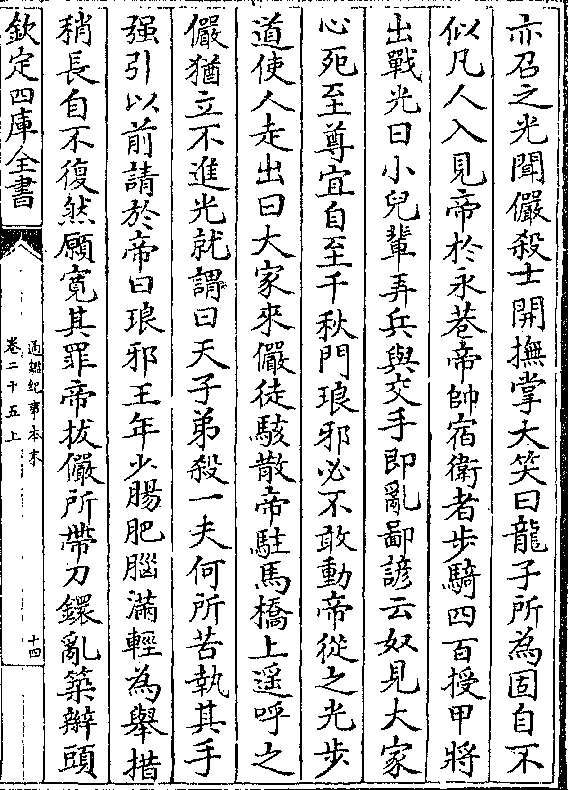 亦召之光聞儼殺士開撫掌大笑曰龍子所為固自不
似凡人入見帝於永巷帝帥宿衛者步騎四百授甲將
出戰光曰小兒輩弄兵與交手即亂鄙諺云奴見大家
心死至尊宜自至千秋門琅邪必不敢動帝從之光步
道使人走出曰大家來儼徒駭散帝駐馬橋上遥呼之
儼猶立不進光就謂曰天子弟殺一夫何所苦執其手
强引以前請於帝曰琅邪王年少腸肥腦滿輕為舉措
稍長自不復然願寛其罪帝拔儼所帶刀鐶亂築辮頭
欽定四庫全書
通鑑紀事本末
卷二十五上
十四